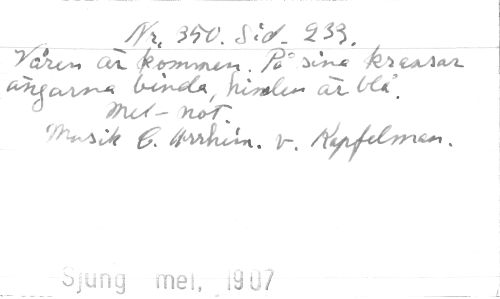 Nr. 350. Sid. 233.
Våren är kommen. På sina kransar
ängarna binda, himlen är blå.
Mel-not.
Musik C. Arrhén. v. Kapfelman.
Sjung mei, 1907